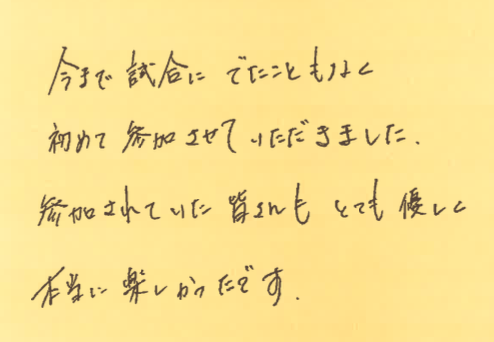 今まで 試合に でたことも なく
初めて 参加させて いただきました.
参加されていた 皆さんも とても 優しく
本当に 楽しかったです.